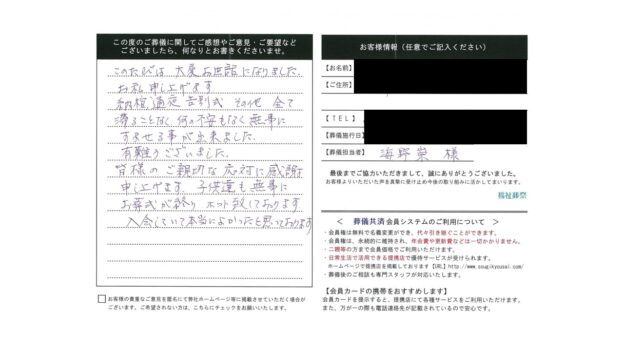 この度のご葬儀に関してご感想やご意見・ご要望など
ございましたら、何なりとお書きくださいませ。
このたびは 大変お世話になりました.
お礼申し上げます
納棺 通夜 告別式 その他 全て
滞ることなく 何の不安もなく 無事に
すませる事が出来ました.
有難うございました.
皆様のご親切な応対に感謝
申し上げます. 子供達も無事に
お葬式が終り ホット致しております
入会していて本当によかったと思っております
お客様の貴重なご意見を匿名にて弊社ホームページ等に掲載させていただく場合が
ございます。ご希望されない方は、こちらにチェックをお願いいたします。
お客様情報（任意でご記入ください）
【お名前】
【ご住所】
【ＴＥＬ】
【葬儀施行日】
【葬儀担当者】 海野栄 様
最後までご協力いただきまして、誠にありがとうございました。
お客様よりいただいた声を真摯に受け止め今後の取り組みに活かしてまいります。
福祉葬祭
＜ 葬儀共済会員システムのご利用について ＞
・会員権は無料で名義変更ができ、代々引き継ぐことができます。
・会員権は、永続的に維持され、年会費や更新費などは一切かかりません。
・二親等の方まで会員価格でご利用いただけます。
・日常生活で活用できる提携店で優待サービスが受けられます。
ホームページで提携店を掲載しております【URL】http://www.sougikyousai.com/
・葬儀後のご相談も専門スタッフが対応いたします。
【会員カードの携帯をおすすめします】
会員カードを提示すると、提携店にて各種サービスをご利用いただけます。
また、万が一の際も電話連絡先が記載されているので安心です。